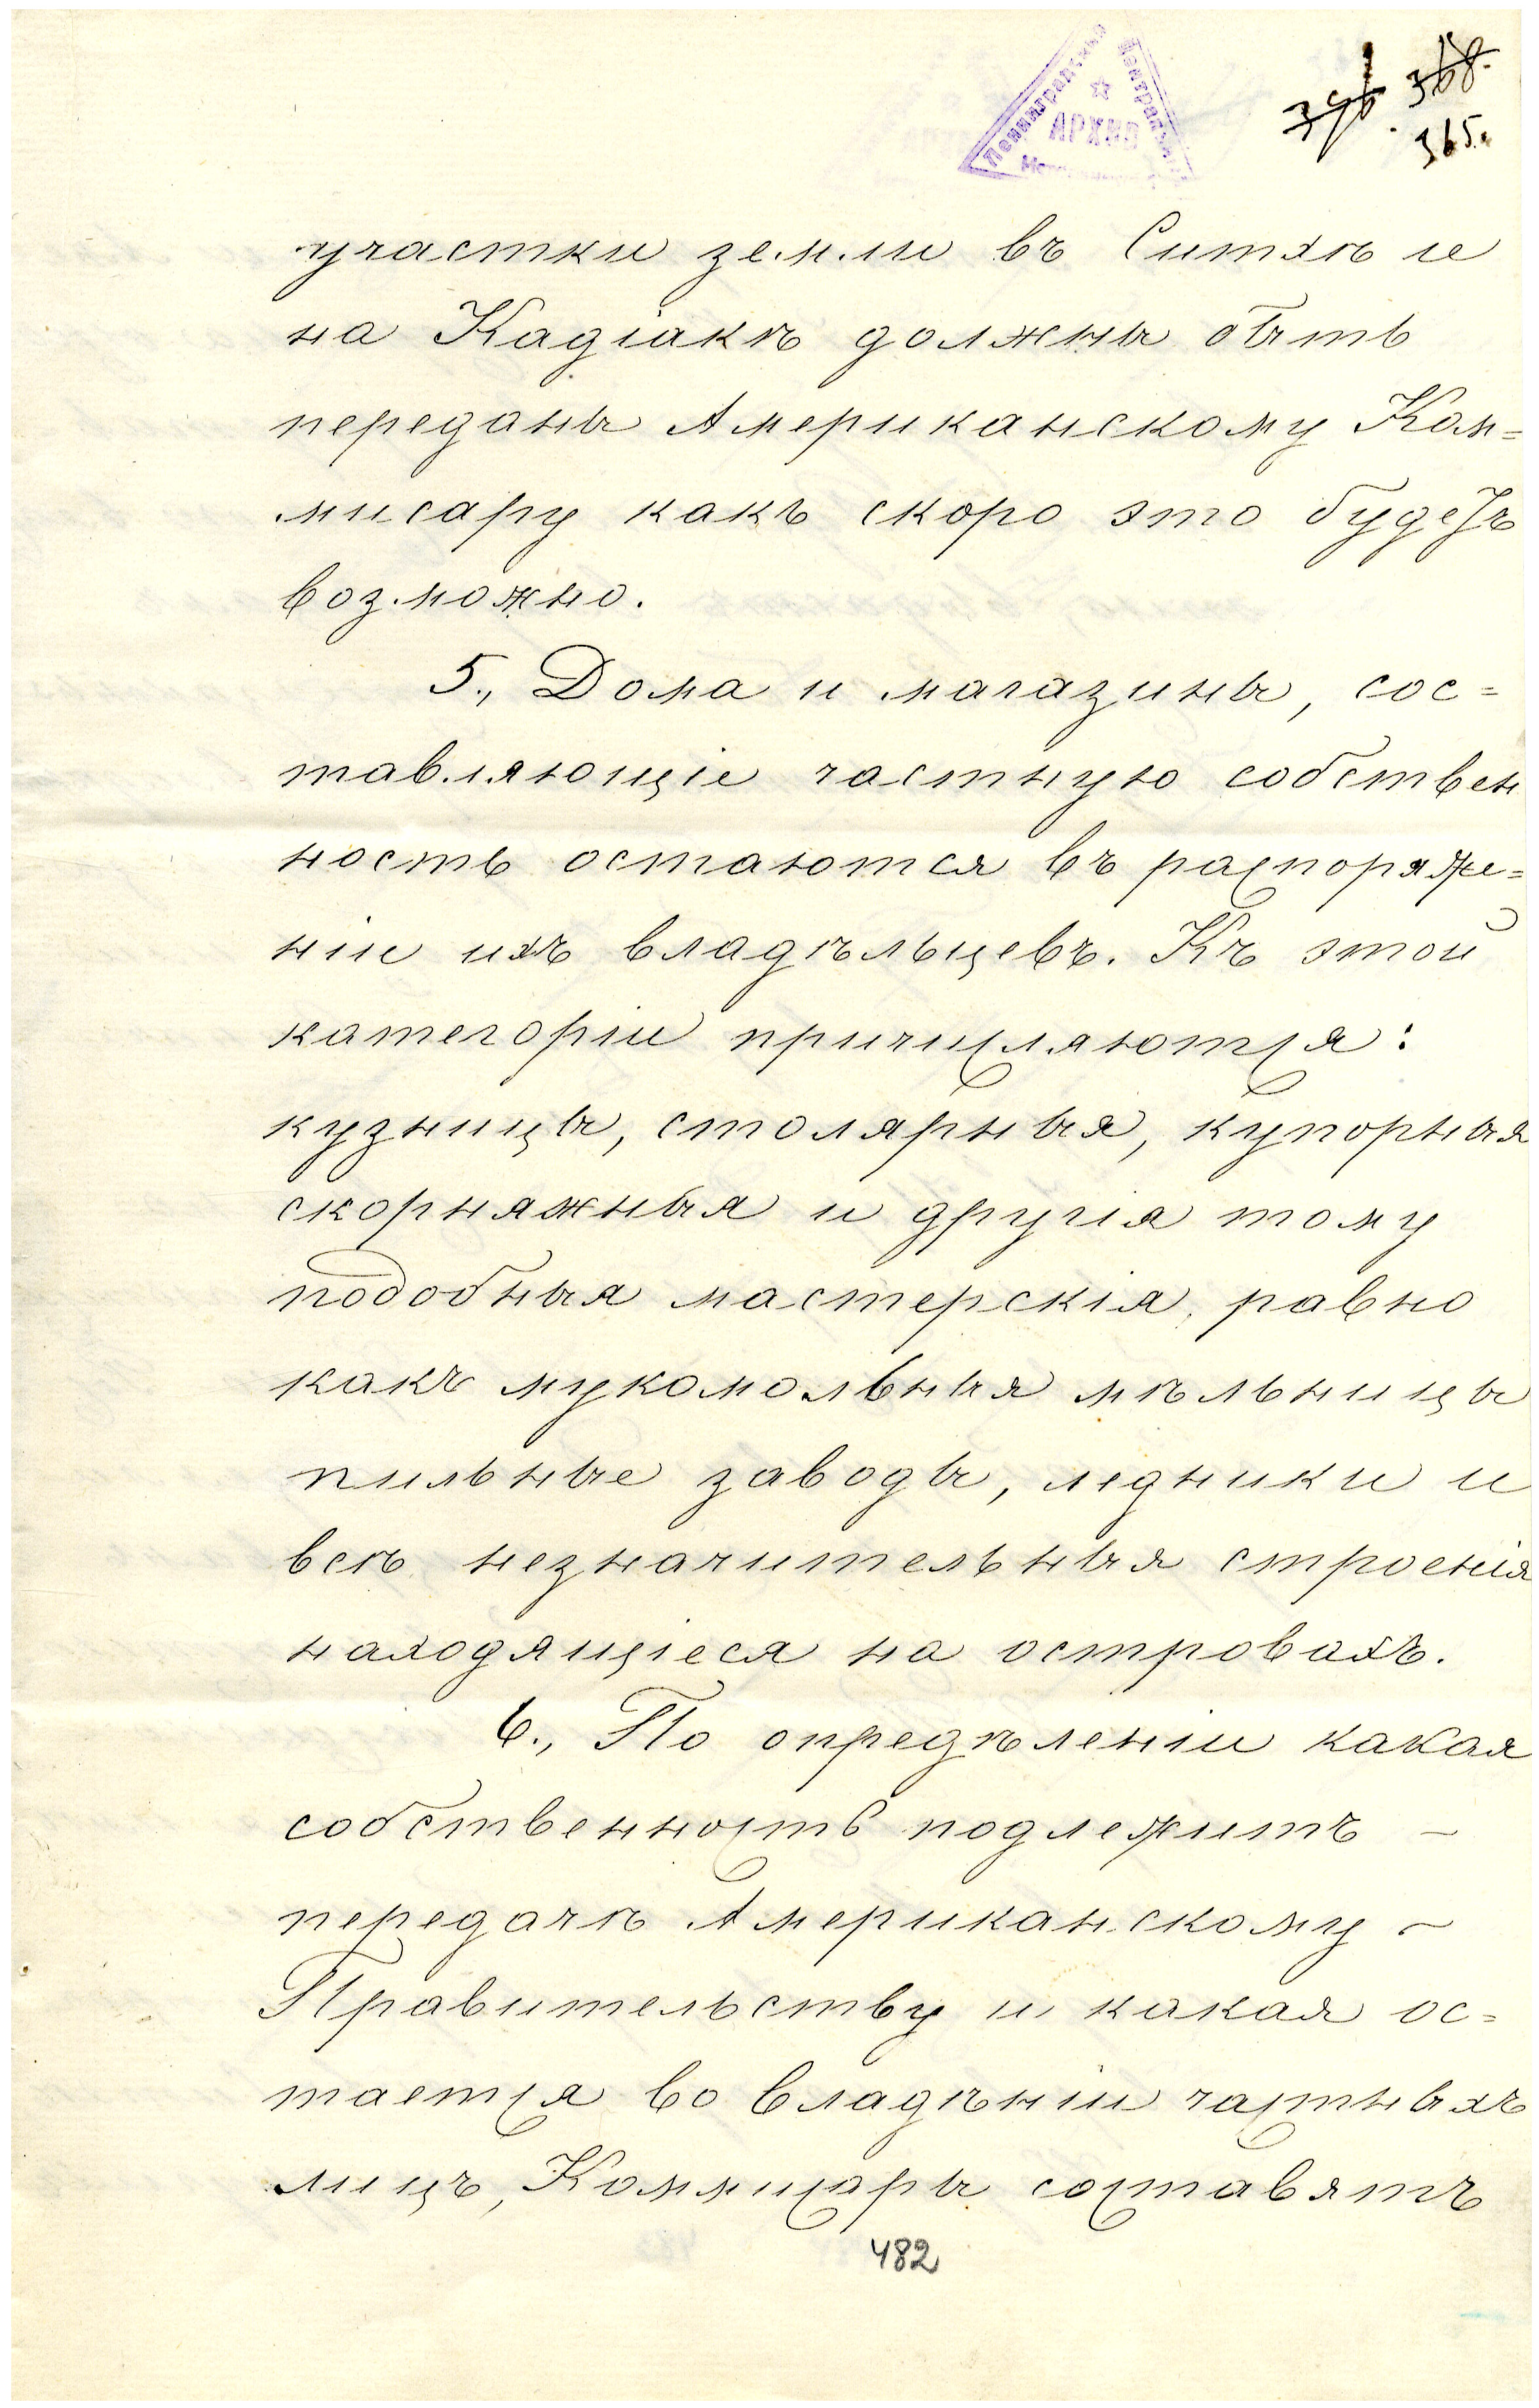 Ленинградский
Центральный
АРХИВ
376. 368.
365.
участки земли въ Ситхѣ и
на Кадіакѣ должны быть
переданы Американскому Ком=
мисару какъ скоро это будетъ
возможно.
5., Дома и магазины, сос=
тавляющіе частную собствен
ность остаются въ распоряже=
ніи ихъ владѣльцевъ. Къ этой
категоріи причисляются:
кузницы, столярныя, купорныя
скорняжныя и другія тому
подобныя мастерскія, равно
какъ мукомольныя мѣльницы
пильные заводы, ледники и
всѣ незначительныя строенія
находящіеся на островахъ.
6., По опредѣленіи какая
собственность подлежитъ –
передачѣ Американскому –
Правительству и какая ос=
тается во владѣніи частныхъ
лицъ, Коммисары составятъ
482